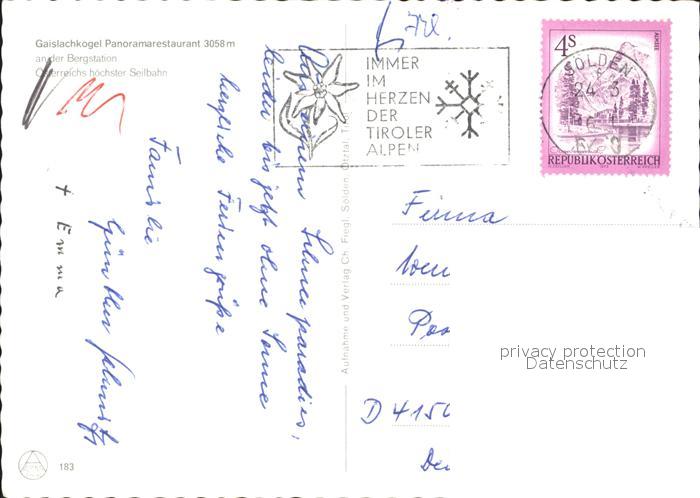 Gaislachkogel Panoramarestaurant 3058 m
an der Bergstation
Österreichs höchster Seilbahn
IMMER
IM
HERZEN
DER
TIROLER
ALPEN
4S
SÖLDEN
24. 3
REPUBLIK ÖSTERREICH
Aus einem Schneeparadies,
leider bis jetzt ohne Sonne
herzliche Feriengrüße
Familie
Günther
+ Emma
Aufnahme und Verlag Ch. Fiegl, Sölden, Ötztal, Tirol
Firma
D 415
privacy protection
Datenschutz
183